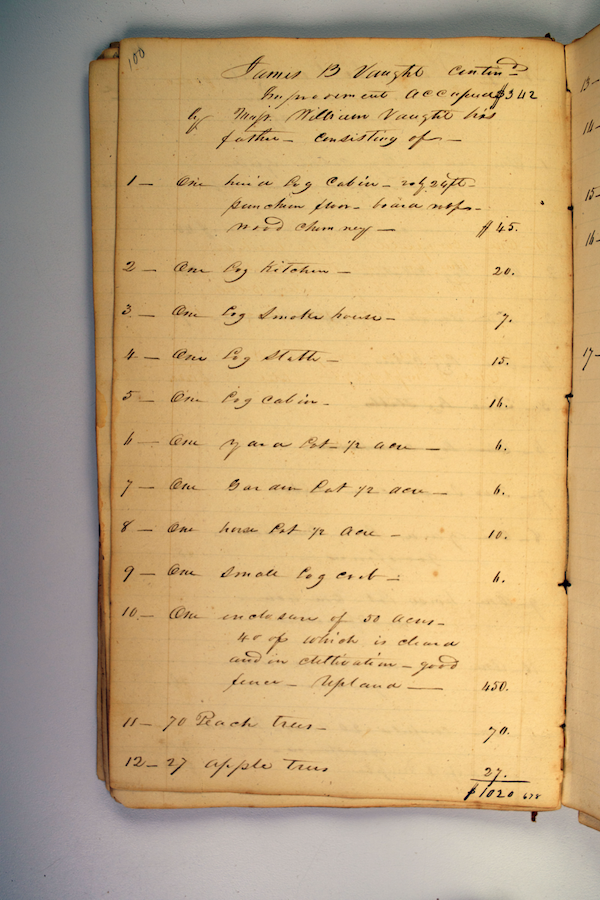 100
James B Vaught Contind
Improvement Occupied $342
by Majr. William Vaught his
father - Consisting of -
1 - One hew'd Log Cabin - 24ft -
puncheon floor - board roof -
wood chimney - $45.
2 - One Log Kitchen - 20.
3 - One Log Smoke house - 7.
4 - One Log Stable - 15.
5 - One Log Cabin - 16.
6 - One yard Lot 1/2 acre - 6.
7 - One Garden Lot 1/2 acre - 6.
8 - One horse Lot 1/2 acre - 10.
9 - One Small Log crib - 6.
10 - One inclosure of 50 acres -
40 of which is cleard
and in cultivation - good
fence - Upland - 450.
11 - 70 Peach trees - 70.
12 - 27 apple trees 27.
$1020 678
13 -
14 -
15 -
16 -
17 -